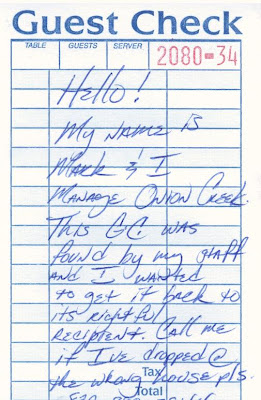 Guest Check
TABLE GUESTS SERVER
2080-34
Hello!
My name is
Mark & I
Manage Onion Creek.
This GC was
found by my staff
and I wanted
to get it back to
its rightful
recipient. Call me
if I've dropped @
Tax
the wrong house pls.
Total